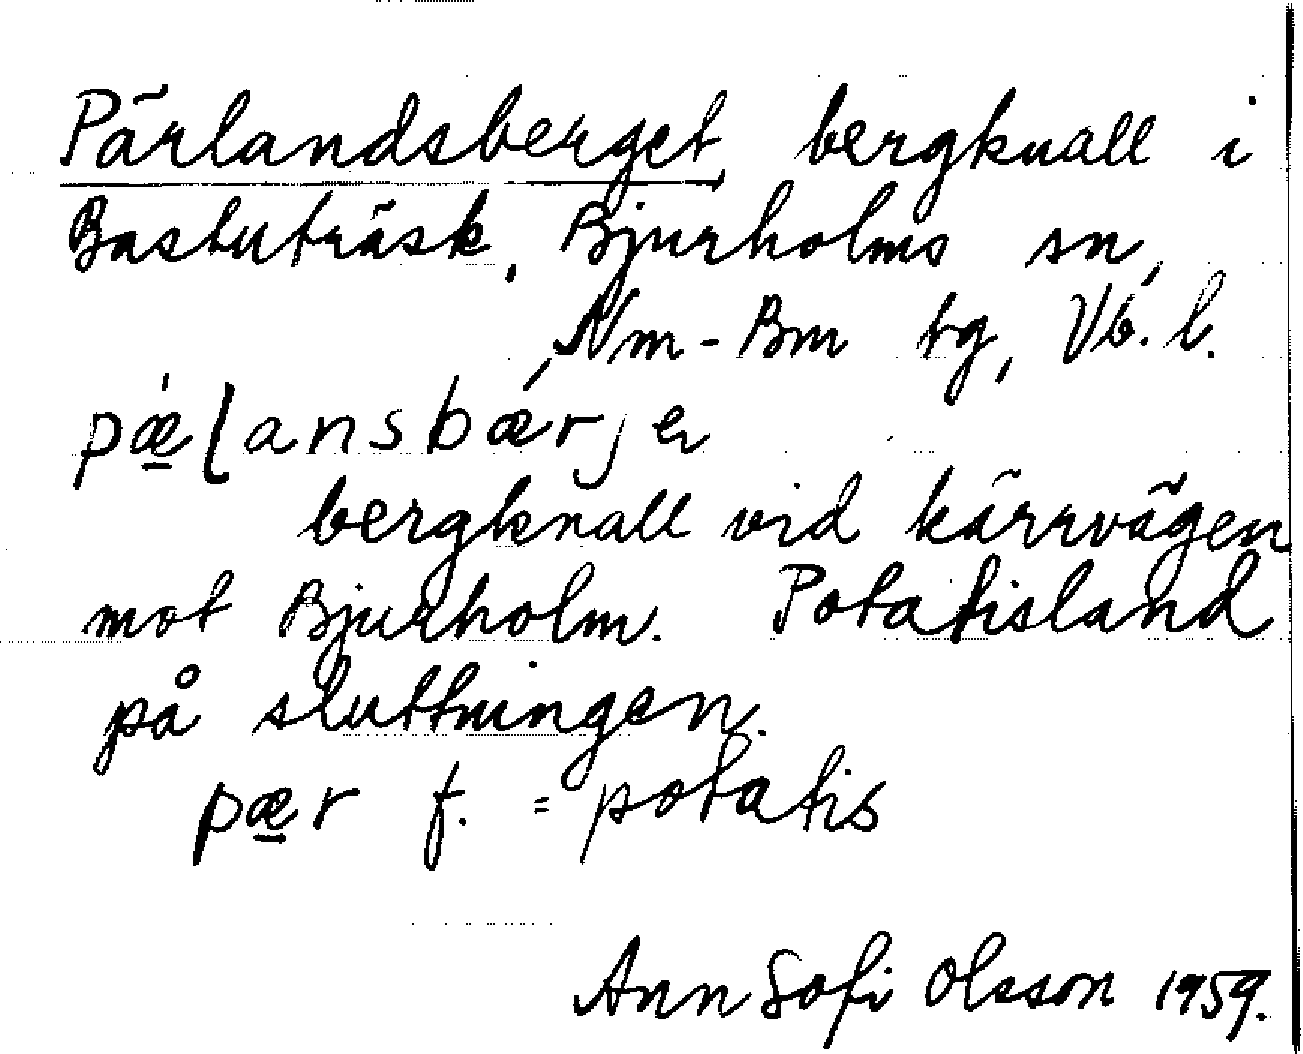 Pärlandsberget, bergknall i
Bastuträsk, Bjurholms sn,
Nm-Bm tg, Vb. l.
pǽ̲ɭansbærjeɴ
bergknall vid kärrvägen
mot Bjurholm. Potatisland
på sluttningen.
pæ̲r f. = potatis
Ann Sofi Olsson 1959.